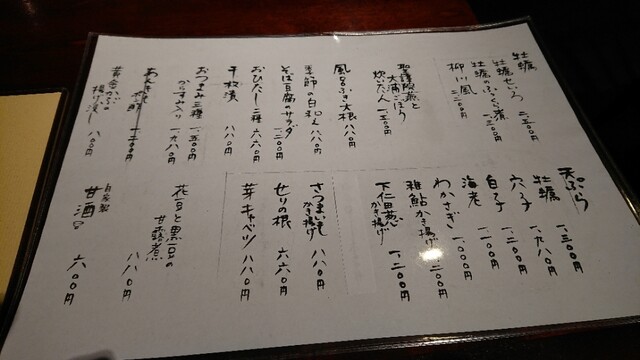 牡蠣
牡蠣せいろ 二、二五〇円
牡蠣のふっくら煮 一、三五〇円
柳川風 二、二〇〇円
聖護院蕪と
大浦ごぼう
炊いたん 一、三五〇円
風呂ふき大根 八八〇円
季節の白和え 八八〇円
そば豆腐のサラダ 一、二〇〇円
おひたし二種 六六〇円
千枚漬 八八〇円
おつまみ三種 一、五〇〇円
からすみ入り 一、九八〇円
あんきも 一、二〇〇円
揚げ浸し 八八〇円
天ぷら 一、三〇〇円
牡蠣 一、九八〇円
穴子 一、二〇〇円
白子 一、一〇〇円
海老 一、〇〇〇円
わかさぎ 一、〇〇〇円
稚鮎かき揚げ 一、二〇〇円
下仁田葱
かき揚げ 一、二〇〇円
さつまいも
かき揚げ 八八〇円
せりの根 六六〇円
芽キャベツ 八八〇円
花豆と黒豆の
甘露煮 八八〇円
自家製
甘酒 六〇〇円